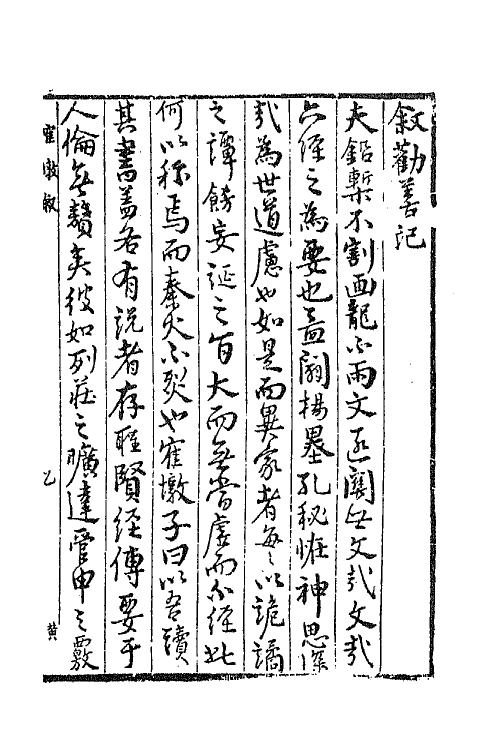 敘勸善記
夫鉛槧不割画龍不雨文之関世文哉文哉
六經之為要也孟闢楊墨孔秘恠神思深
哉為世道慮也如是而異家者每每以詭譎
之譚餙妄誕之旨大而無當虛而不經此
何以称焉而秦火不烈也隺墩子曰以吾讀
其書盖各有説者存聖賢經傳要于
人倫無贅矣彼如列莊之曠達管申之覈
隺墩敘
乙
黄